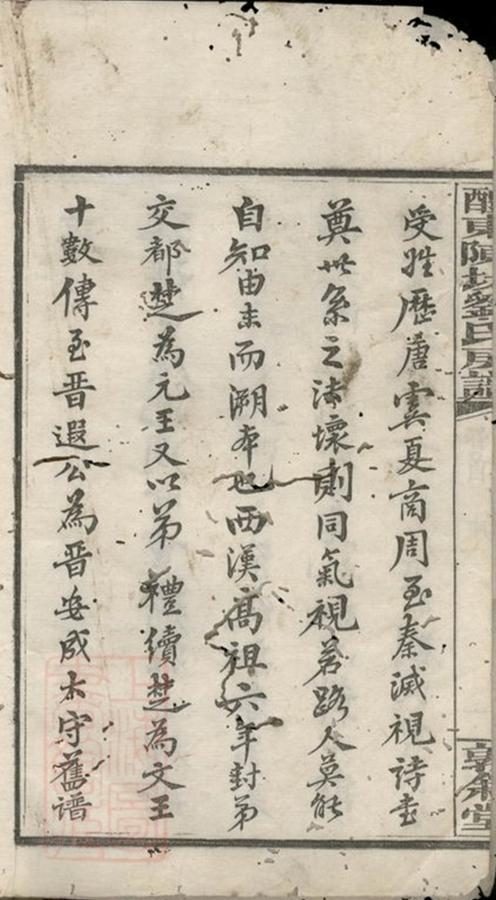 醴東陳坊劉氏房譜
敦倫堂
受姓歷唐虞夏商周至秦滅視詩書
奠世系之法壞則同氣視若路人莫能
自知由末而溯本也西漢高祖六年封弟
交都楚為元王又以弟禮續楚為文王
十數傳至晉遐公為晉安成太守舊譜